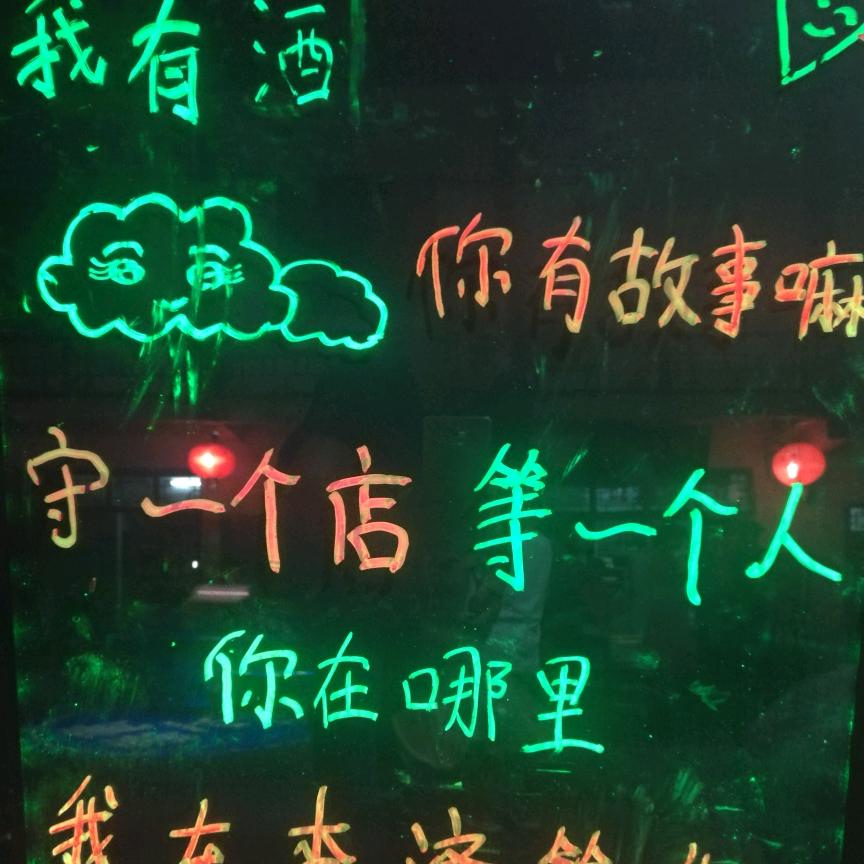 我有酒
你有故事嘛
守一个店 等一个人
你在哪里
我在